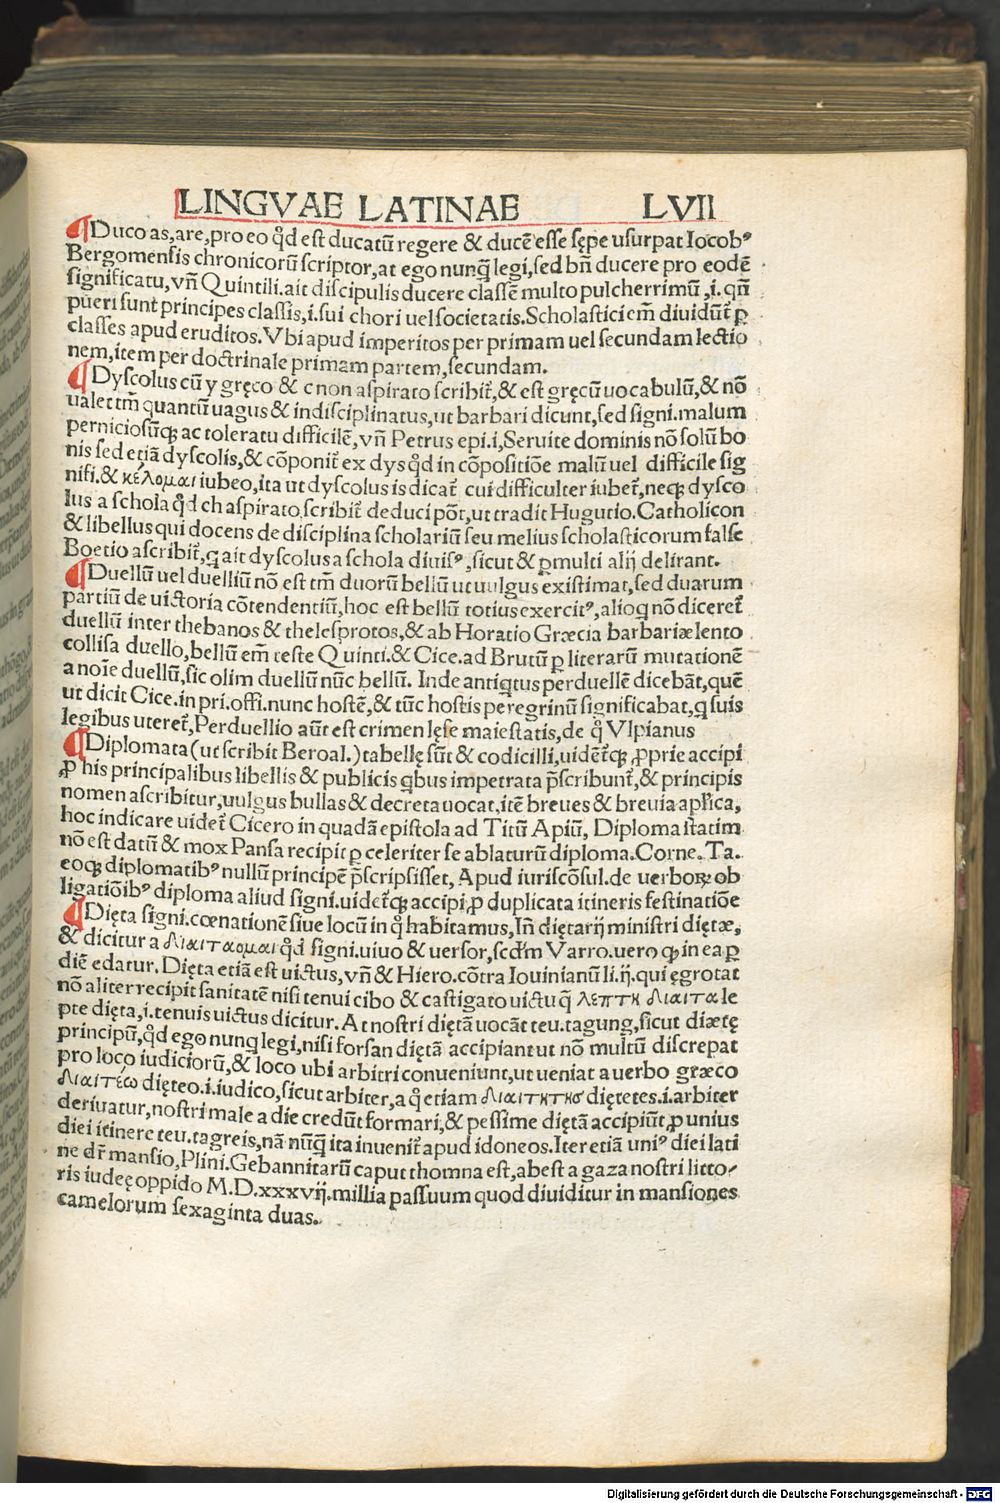 LINGVAE LATINAE LVII
¶Duco as,are,pro eo qd̛ est ducatū regere & ducē esse sępe usurpat Iocobꝰ
Bergomensis chronicorū scriptor,at ego nunq̄ legi,sed bn̄ ducere pro eodē
significatu,vn̄ Quintili.ait discipulis ducere classē multo pulcherrimū ,i.qn̄
pueri sunt principes classis,i.sui chori uel societatis.Scholastici em̄ diuidūt̄ ꝑ
classes apud eruditos.Vbi apud imperitos per primam uel secundam lectio
nem,item per doctrinale primam partem,secundam.
¶Dyscolus cū y gręco & c non aspirato scribit̄,& est gręcū uocabulū,& nō
ualet tm̄ quantū uagus & indisciplinatus,ut barbari dicunt,sed signi.malum
perniciosūqꝫ ac toleratu difficilē,vn̄ Petrus epi.i,Seruite dominis nō solū bo
nis sed etiā dyscolis,& cōponit̄ ex dys qd̛ in cōpositiōe malū uel difficile sig
nifi.& κέλομαι iubeo,ita ut dyscolus is dicat̄ cui difficulter iubet̄,neqꝫ dysco
lus a schola qd̛ ch aspirato,scribit̄ deduci pōt,ut tradit Hugutio.Catholicon
& libellus qui docens de disciplina scholariū seu melius scholasticorum false
Boetio ascribit̄,q ait dyscolus a schola diuisꝰ,sicut & ꝑmulti alij delirant.
¶Duellū uel duelliū nō est tm̄ duorū bellū ut uulgus existimat,sed duarum
partiū de uictoria cōtendentiū,hoc est bellū totius exercitꝰ,alioq nō diceret̄
duellū inter thebanos & thelesprotos,& ab Horatio Græcia barbariæ lento
collisa duello,bellū em̄ teste Quinti.& Cice.ad Brutū ꝑ literarū mutationē
a noīe duellū,sic olim duellū nūc bellū. Inde antiqtus perduellē dicebāt,quē
ut dicit Cice.in pri.offi.nunc hostē,& tūc hostis peregrinū significabat,q suis
legibus uteret̄,Perduellio aūt est crimen lęse maiestatis,de q̊ Vlpianus
¶Diplomata(ut scribit Beroal.)tabellę sūt & codicilli,uidet̄qꝫ ꝓprie accipi
ꝓ his principalibus libellis & publicis qbus impetrata p̄scribunt̄,& principis
nomen ascribitur,uulgus bullas & decreta uocat,itē breues & breuia apl̄ica,
hoc indicare uidet̄ Cicero in quadā epistola ad Titū Apiū, Diploma statim
nō est datū & mox Pansa recipit ꝑ celeriter se ablaturū diploma.Corne.Ta.
eoqꝫ diplomatibꝰ nullū principē p̄scripsisset, Apud iuriscōsul.de uerboꝝ ob
ligatiōibꝰ diploma aliud signi.uidet̄qꝫ accipi,ꝓ duplicata itineris festinatiōe
¶Dięta signi.cœnationē siue locū in q̊ habitamus,In̄ diętarij ministri diętæ,
& dicitur a διαιταομαι qd̛ signi.uiuo & uersor,scd̄m Varro.uero qꝫ in ea ꝑ
diē edatur.Dięta etiā est uictus,vn̄ & Hiero.cōtra Iouinianū li.ij.qui ęgrotat
nō aliter recipit sanitatē nisi tenui cibo & castigato uictu q̄ λεπτη διαιτα le
pte dięta,i.tenuis uictus dicitur. At nostri diętā uocāt teu.tagung,sicut diætę
principū,qd̛ ego nunq̄ legi,nisi forsan diętā accipiant ut nō multū discrepat
pro loco iudiciorū,& loco ubi arbitri conueniunt,ut ueniat a uerbo græco
διαιτέω dięteo.i.iudico,sicut arbiter,a q̊ etiam διαιτητησ diętetes.i.arbiter
deriuatur,nostri male a die credūt formari,& pessime diętā accipiūt ꝓ unius
diei itinere teu.tagreis,nā nūq̄ ita inuenit̄ apud idoneos.Iter etiā uniꝰ diei lati
ne dr̄ mansio,Plini.Gebannitarū caput thomna est,abest a gaza nostri litto/
ris iudeę oppido M.D.xxxvij.millia passuum quod diuiditur in mansiones
camelorum sexaginta duas.
Digitalisierung gefördert durch die Deutsche Forschungsgemeinschaft - DFG